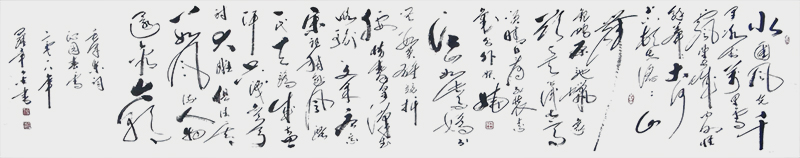 北国风光千
里冰封万里雪
飘望长城内外惟
余莽莽大河
上下顿失滔滔山
舞
银蛇原驰蜡象
欲与天公试比高
须晴日看红装素
裹分外妖娆
江山如此多娇引
无数英雄竞折
腰惜秦皇汉武
略输文采唐宗
宋祖稍逊风骚
一代天骄成吉思
汗只识弯弓
射大雕俱往矣
数风流人物
还看今朝
毛泽东词
沁园春雪
书